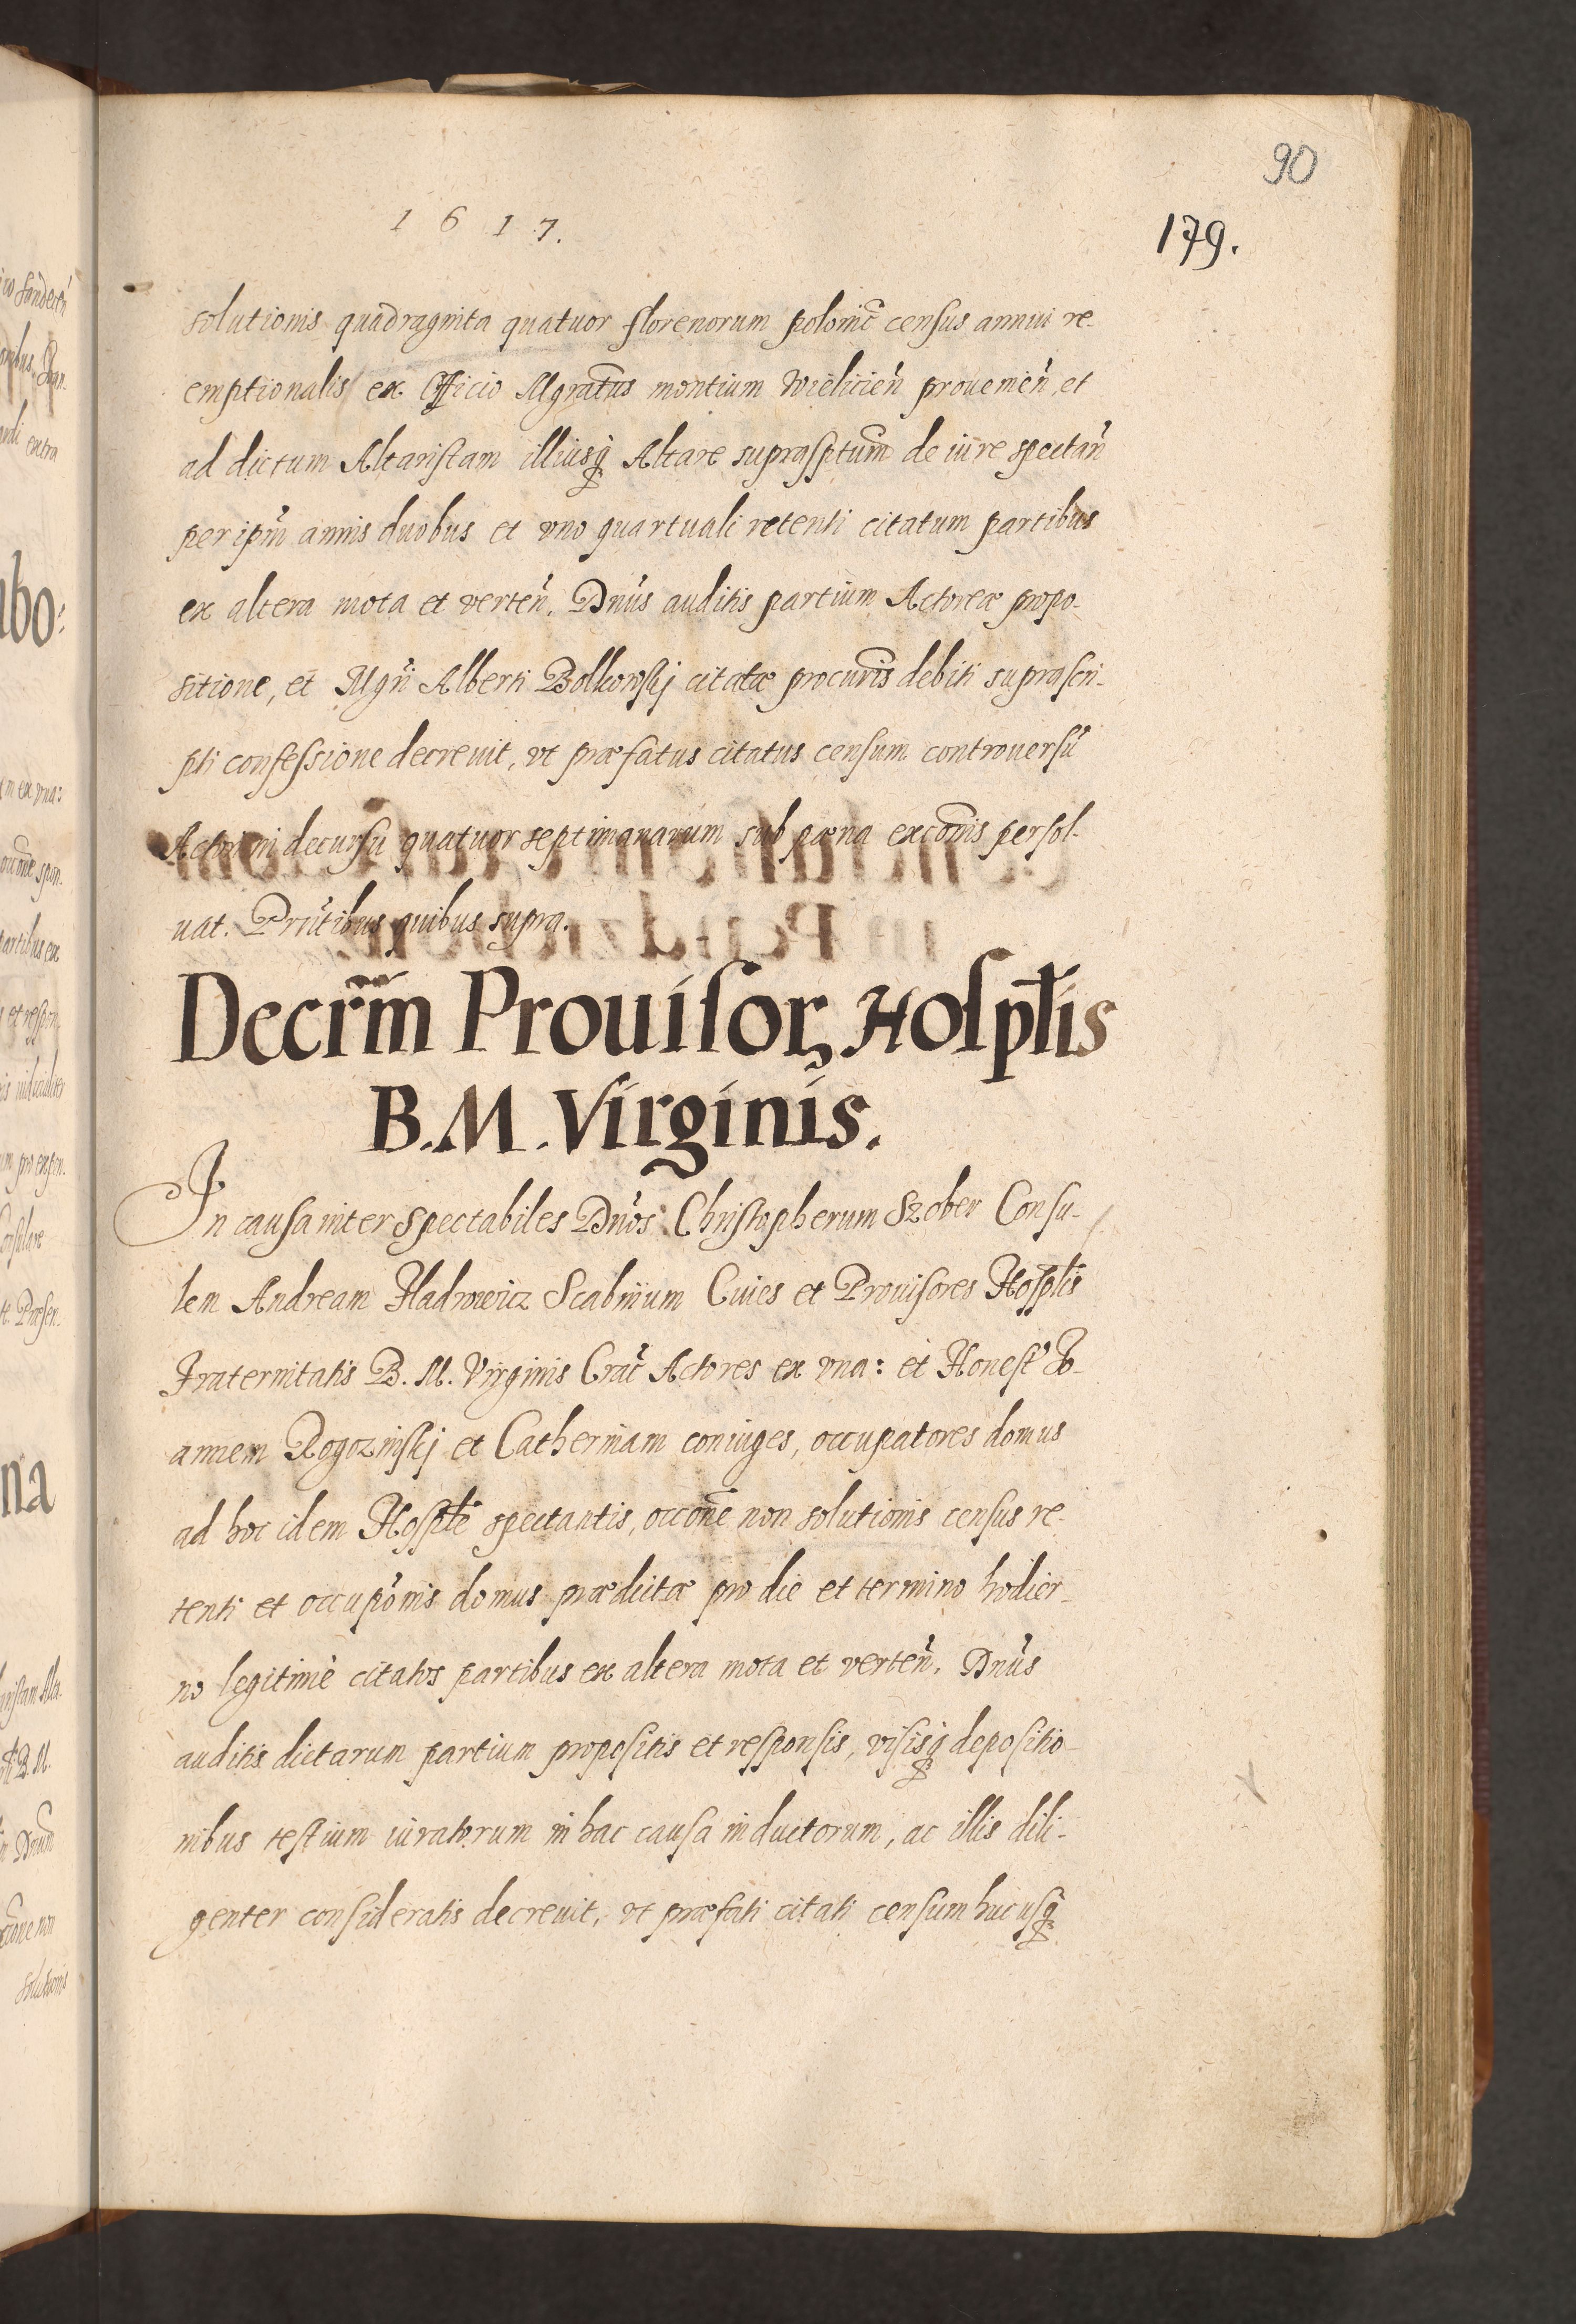 90
1617.
179.
solutionis quadraginta quatuor florenorum polonic̄ census annui re-
emptionalis ex Officio Mgratus montium Wielicien̄ prouenien̄, et
ad dictum Altaristam illiusq̨ Altare suprasptum de iure spectan̄
per ipm̄ annis duobus et vno quartuali retenti citatum partibus
ex altera mota et verten̄. Dnūs auditis partium Actoreæ propo-
sitione, et Mgrī Alberti Bolkowskj citatæ procuris debiti suprascri-
pti confessione decreuit, vt præfatus citatus censum controuersū
Actori in decursu quatuor septimanarum sub pæna excomīs persol-
uat. Prn̄tibus quibus supra.
Decr̄m Prouiſorꝝ Hoſpłis
B.M. Virginis.
In causa inter Spectabiles Dnōs Christopherum Szober Consu-
lem Andream Hadrowicz Scabinum Ciues et Prouisores Hosptlis
Fraternitatis B. M. Virginis Crac̄ Actores ex vna: et Honest' Jo-
annem Rogozinskj et Catherinam coniuges, occupatores domus
ad hoc idem Hosptle spectantis, occone non solutionis census re-
tenti et occupōnis domus prædictæ pro die et termino hodier-
no legitimè citatos partibus ex altera mota et verten̄. Dnūs
auditis dictarum partium propositis et responsis, visisq̨ depositio-
nibus testium iuratorum in hac causa inductorum, ac illis dili-
genter consideratis decreuit, vt præfati citati censum hucusq̨